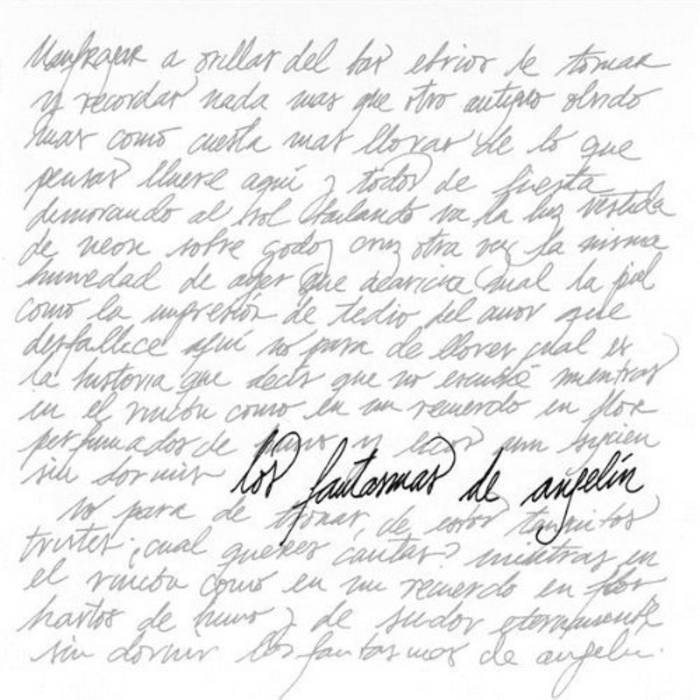 Naufragar a orillas del bar ebrios de tomar
y recordar nada mas que otro antiguo olvido
mas como cuesta mas llorar de lo que
pensar llueve aquí y todos de fiesta
demorando al sol bailando va la luz vestida
de neon sobre godoy cruz otra vez la misma
humedad de ayer que acaricia cual la piel
como la impresión de tedio del amor que
desfallece aquí no para de llover cual es
la historia que decis que no escuché mientras
en el rincón como en un recuerdo en flor
perfumados de humo y licor aun siguen
sin dormir los fantasmas de angelín
no para de de estos tanguitos
tristes ¿cual querées cantar? mientras en
el rincón como en un recuerdo en flor
hartos de humo y de sudor eternamente
sin dormir los fantasmas de angelin.